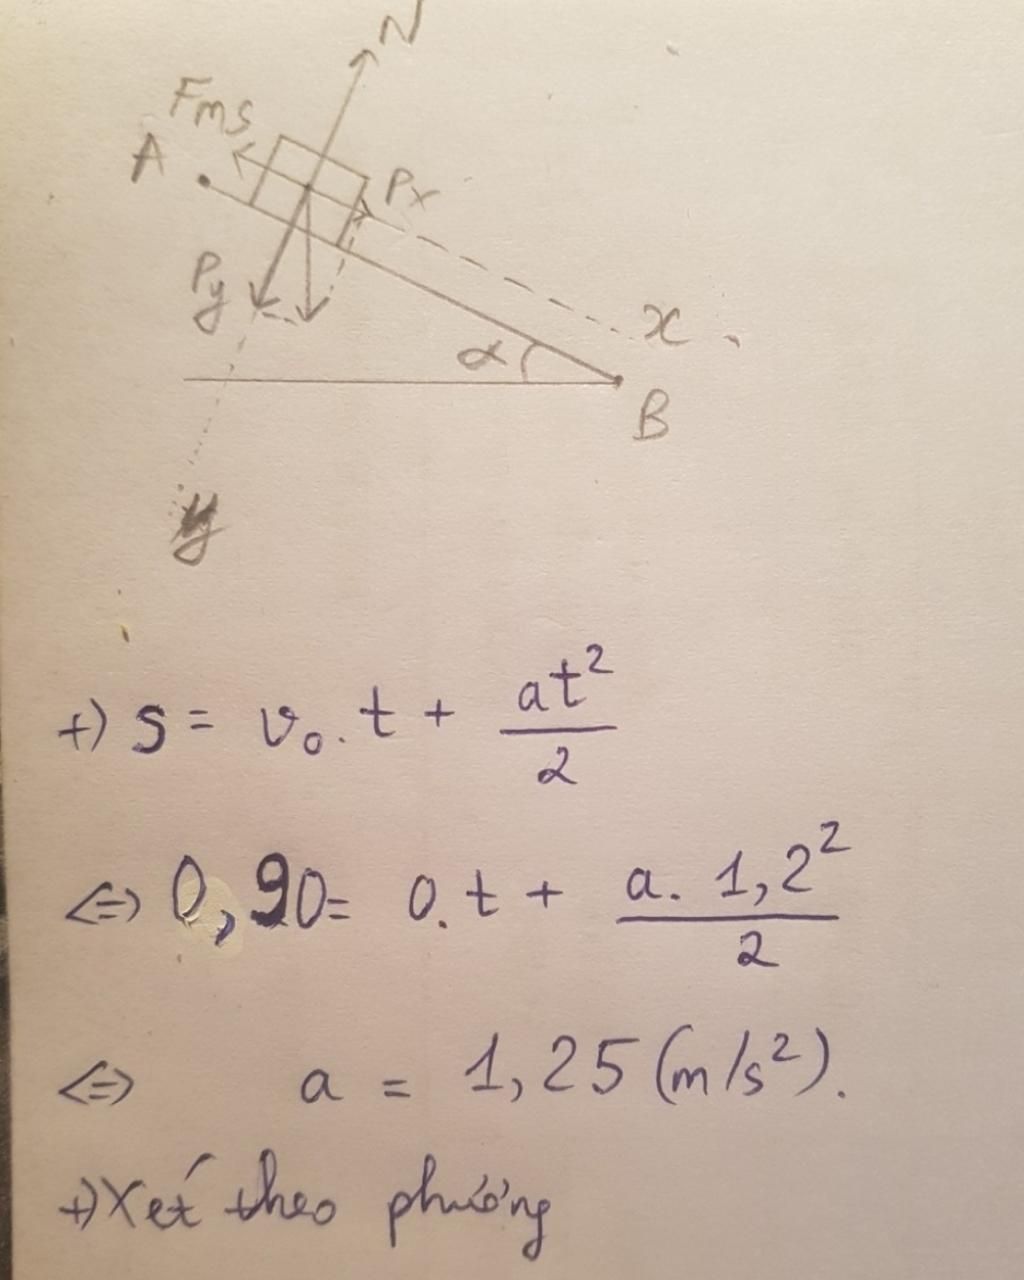 N
Fms
A
Px
Py
x
α
B
y
+) S = v₀.t + at²/2
<=> 0,90 = 0.t + a. 1,2²/2
<=> a = 1,25 (m/s²).
+) Xét theo phương